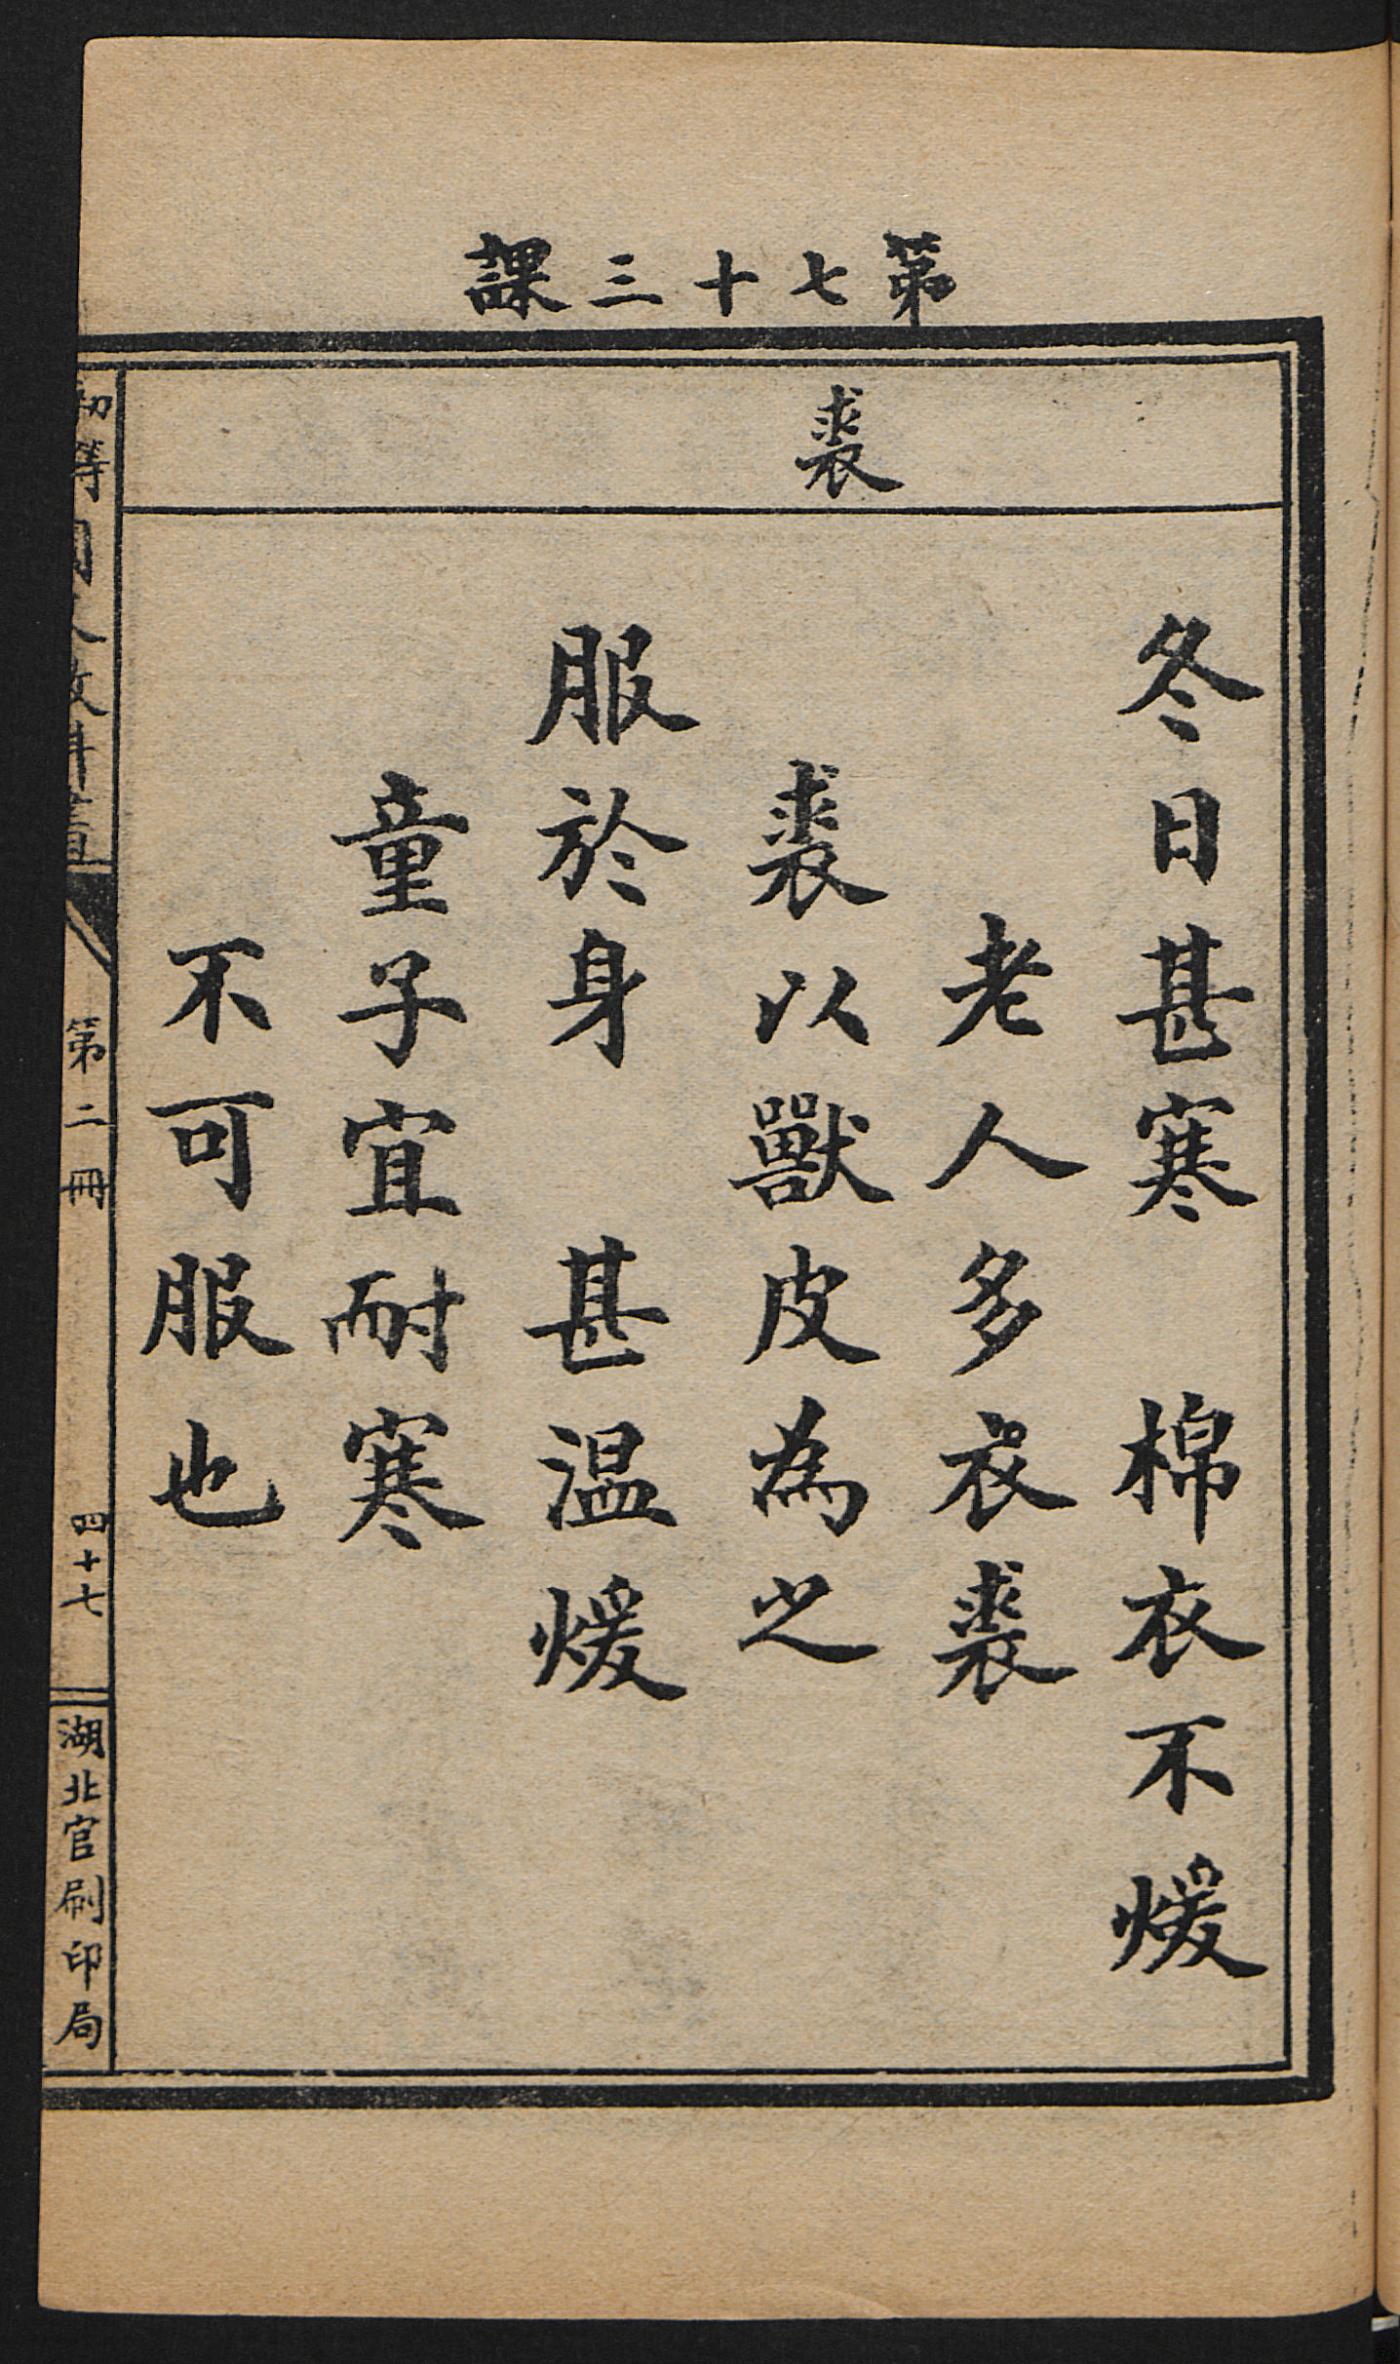 第七十三課
裘
冬日甚寒　棉衣不煖
老人多衣裘
裘以獸皮為之
服於身　甚温煖
童子宜耐寒
不可服也
初等國文教科書
第二冊
四十七
湖北官刷印局